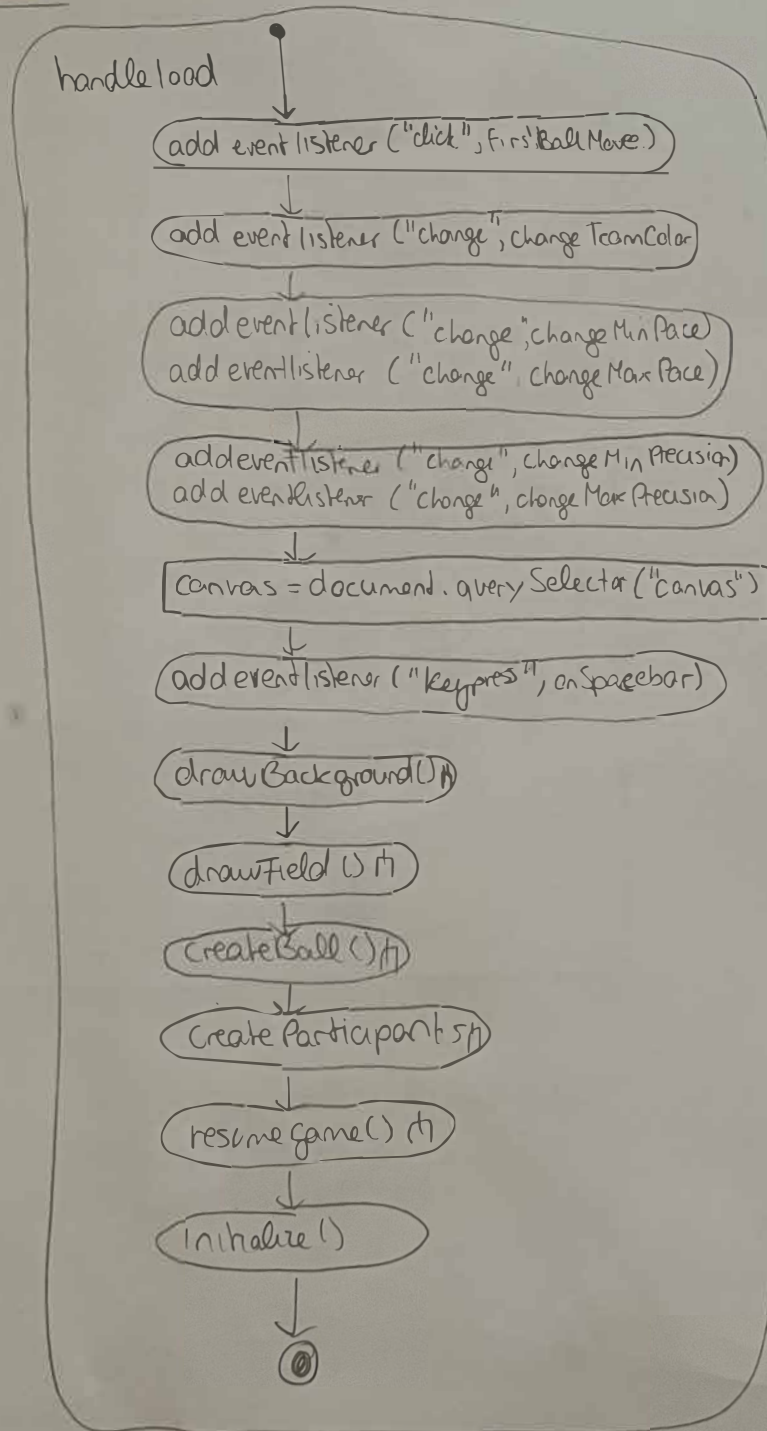 handleload
add eventlistener ("click", FirstBallMove)
add eventlistener ("change", changeTeamColor
addeventlistener ("change", changeMinPace)
addeventlistener ("change" changeMaxPace)
addeventlistener ("change", changeMinPrecision)
add eventlistener ("change", changeMaxPrecision)
canvas = document.querySelector("canvas")
add eventlistener ("keypress", onSpacebar)
drawBackground()
drawField ()
createBall ()
createParticipants
resumegame()
initialize()